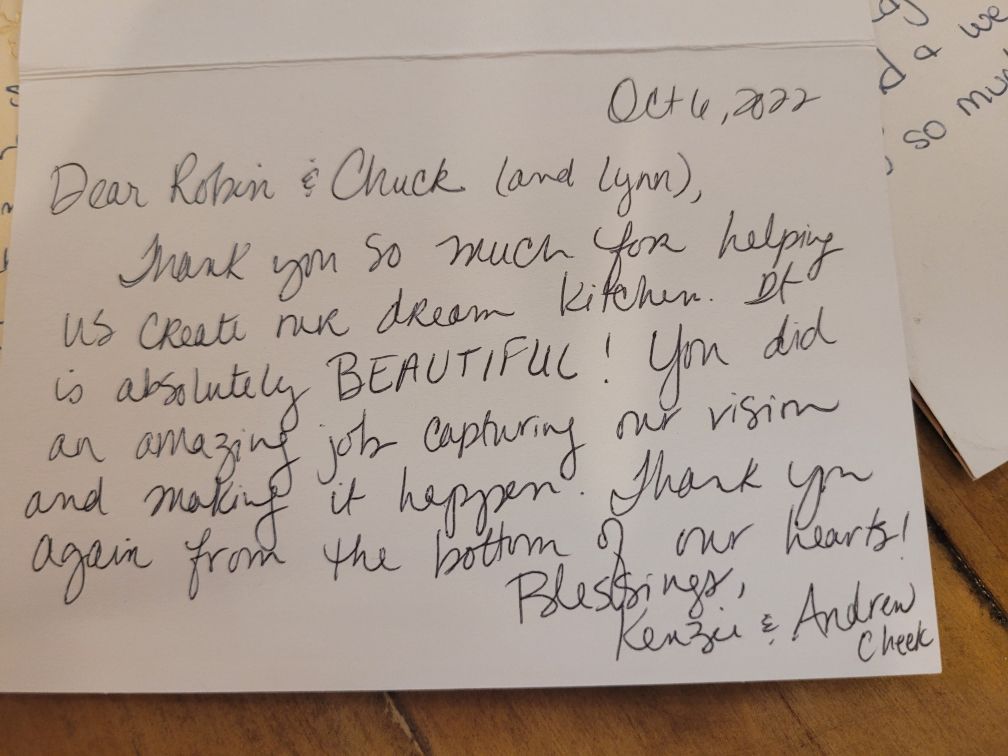 Oct 6, 2022
Dear Robin & Chuck (and Lynn),
Thank you so much for helping
us create our dream kitchen. It
is absolutely BEAUTIFUL! You did
an amazing job capturing our vision
and making it happen. Thank you
again from the bottom of our hearts!
Blessings,
Kenzie & Andrew
Cheek
& we
so mu